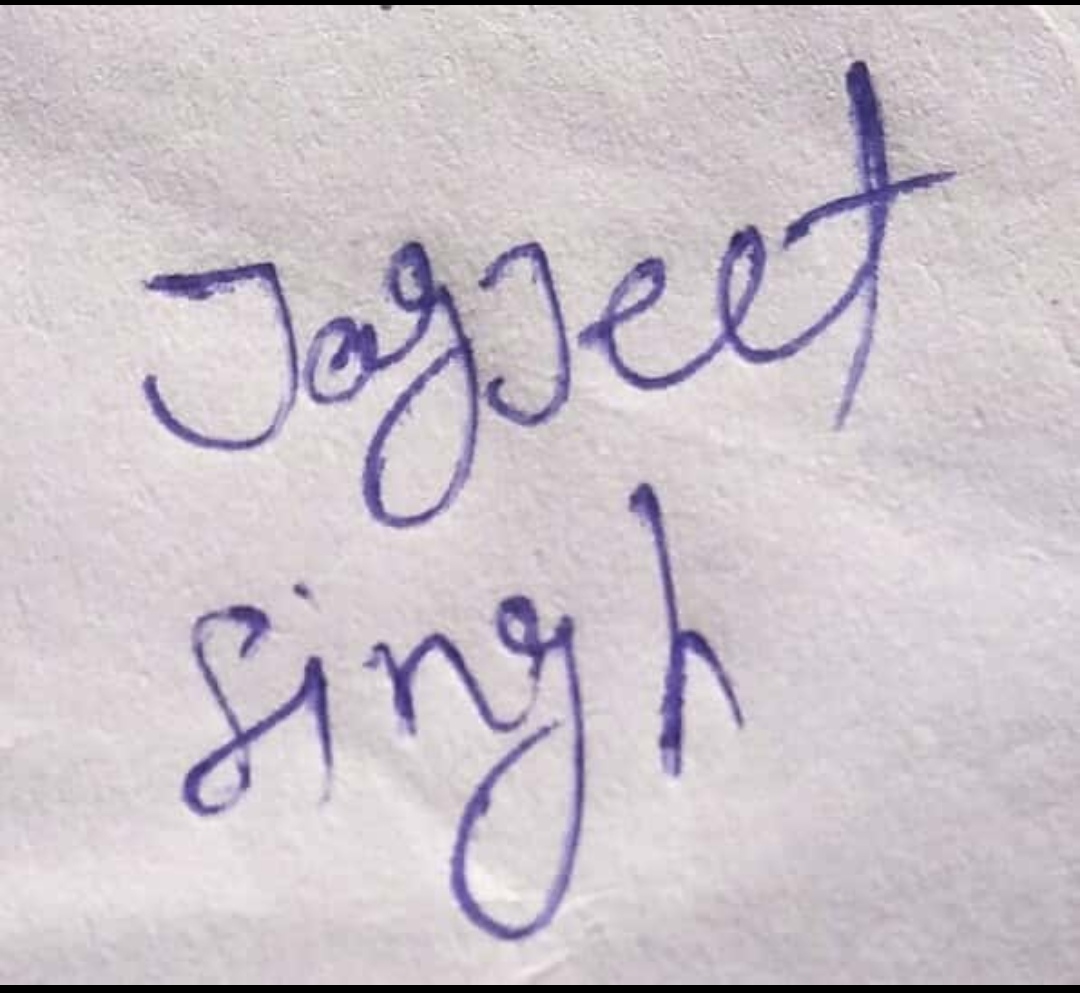 Jagjeet
Singh